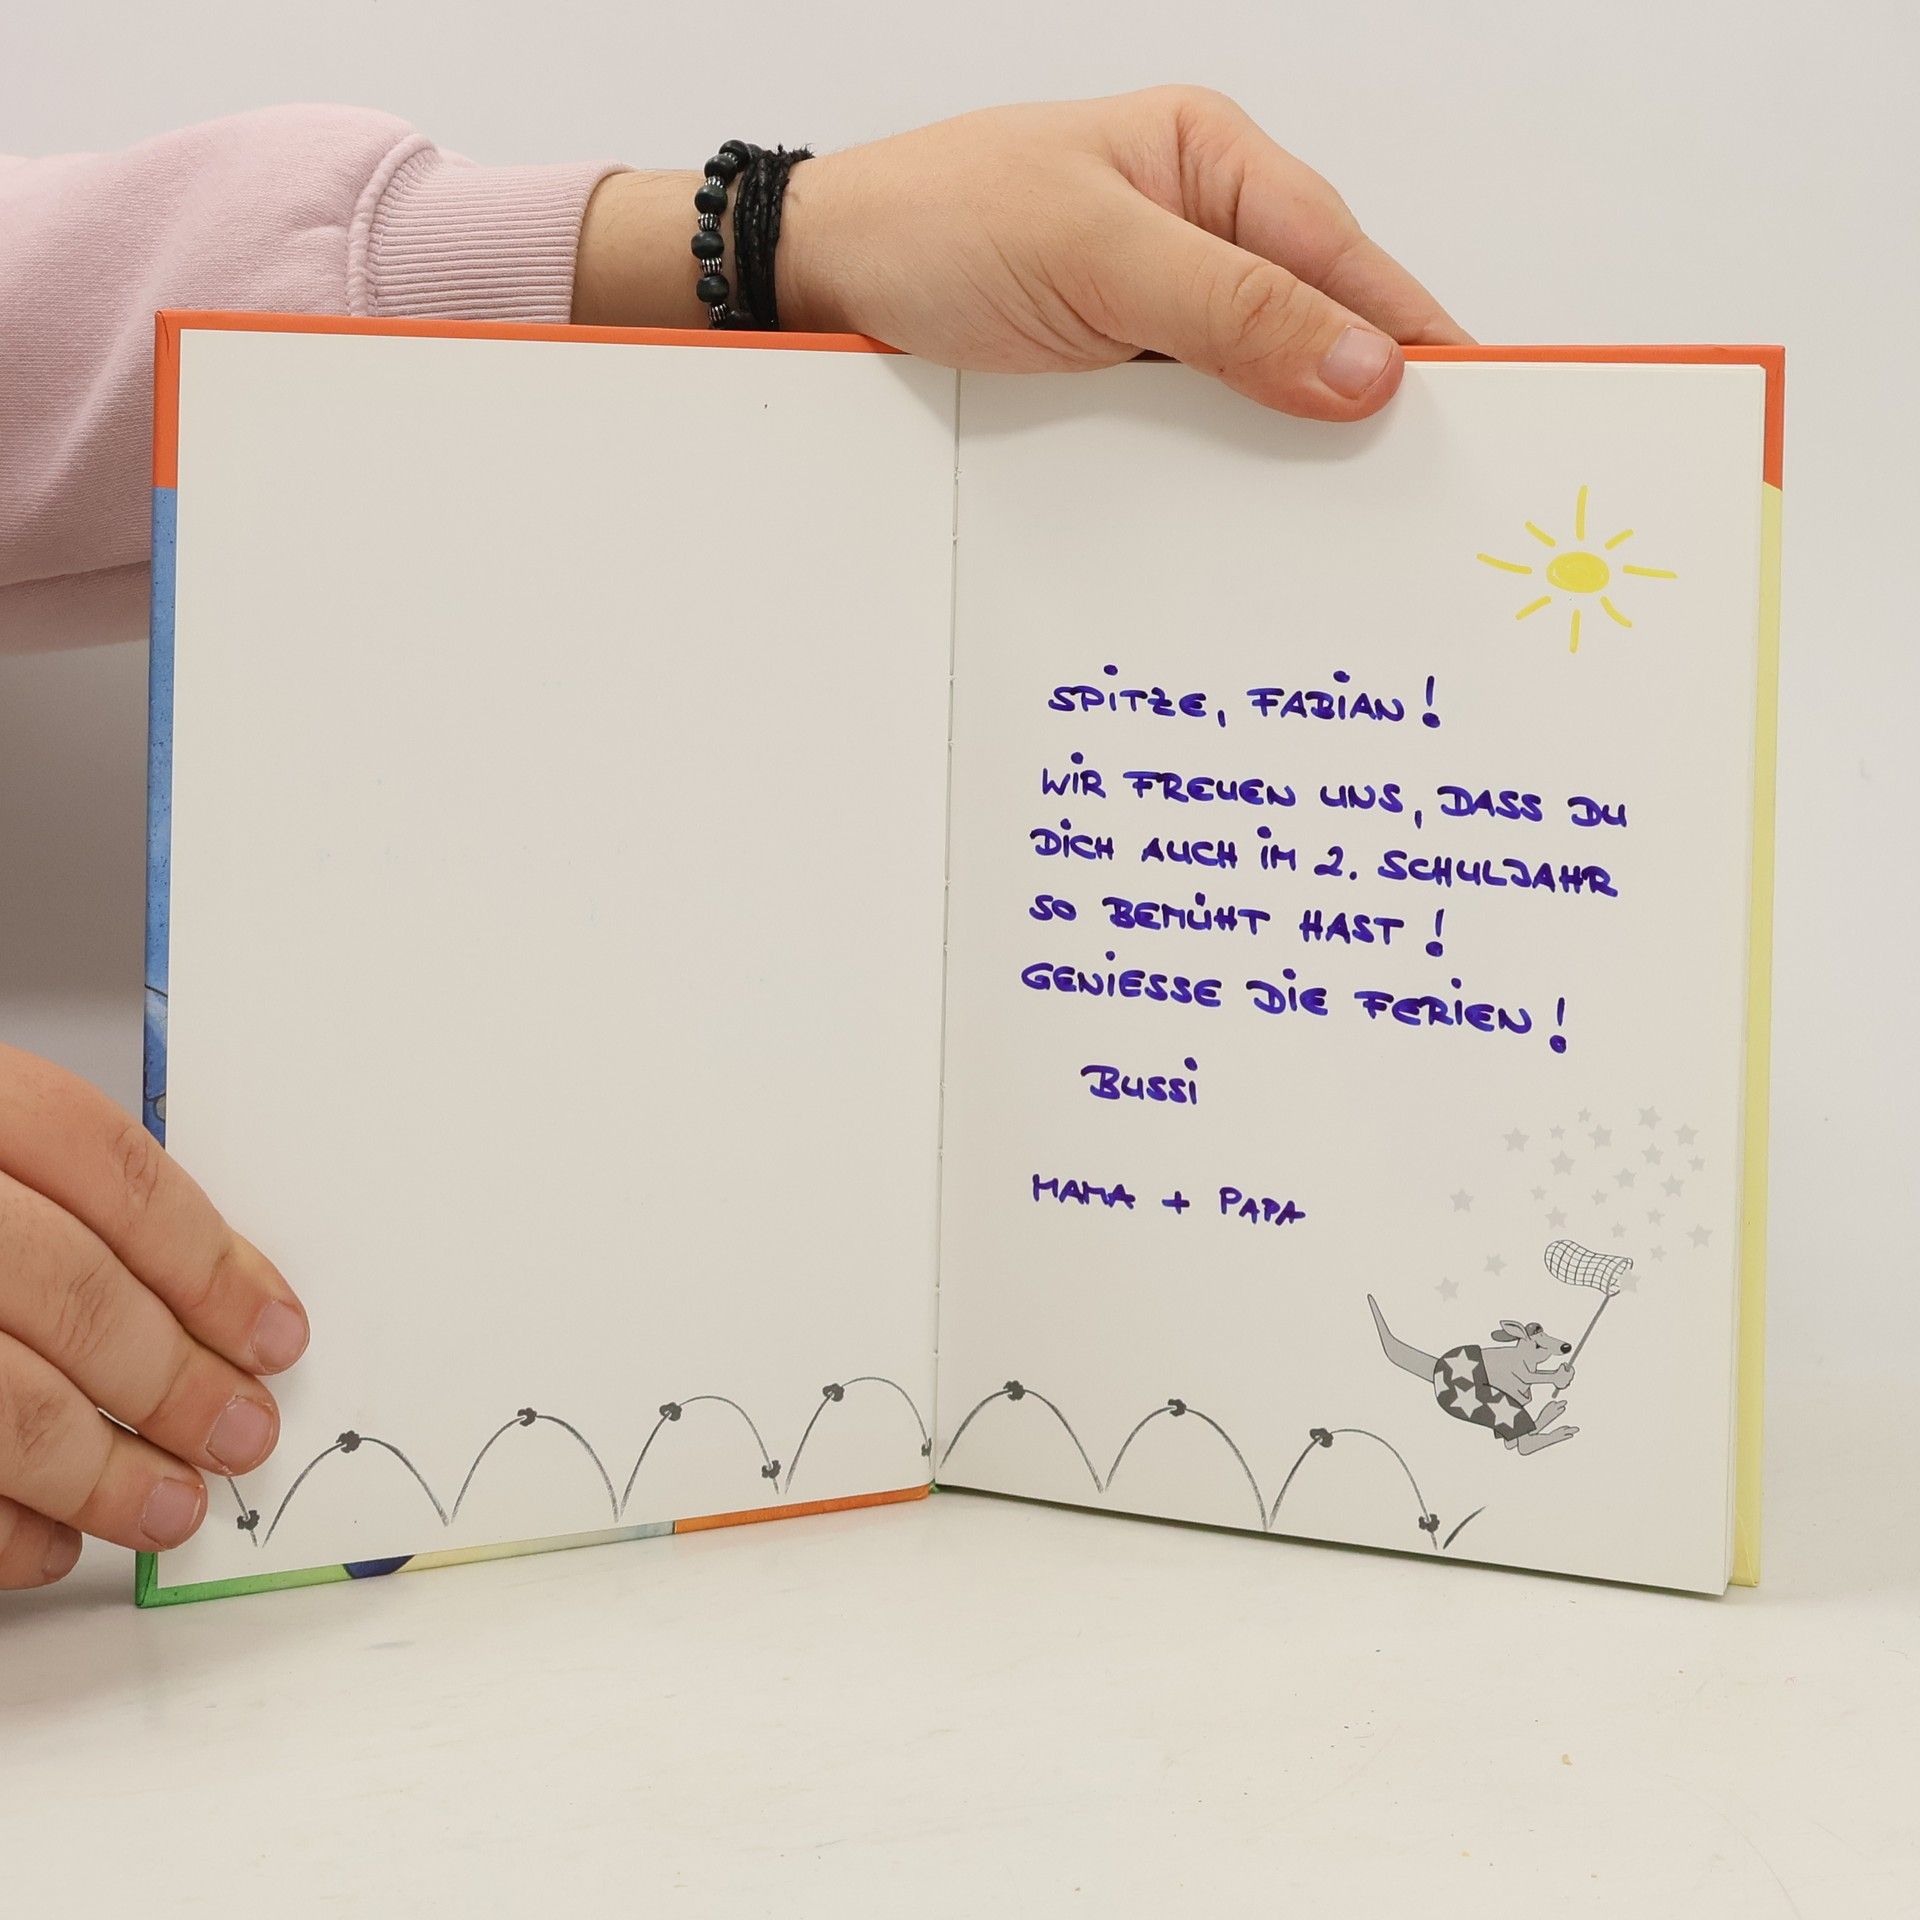 SPiTZE, FABiAN!
WiR FREUEN UNS, DASS DU
DiCH AUCH iM 2. SCHULJAHR
SO BEMÜHT HAST!
GENiESSE DiE FERiEN!
BUSSi
MAMA + PAPA